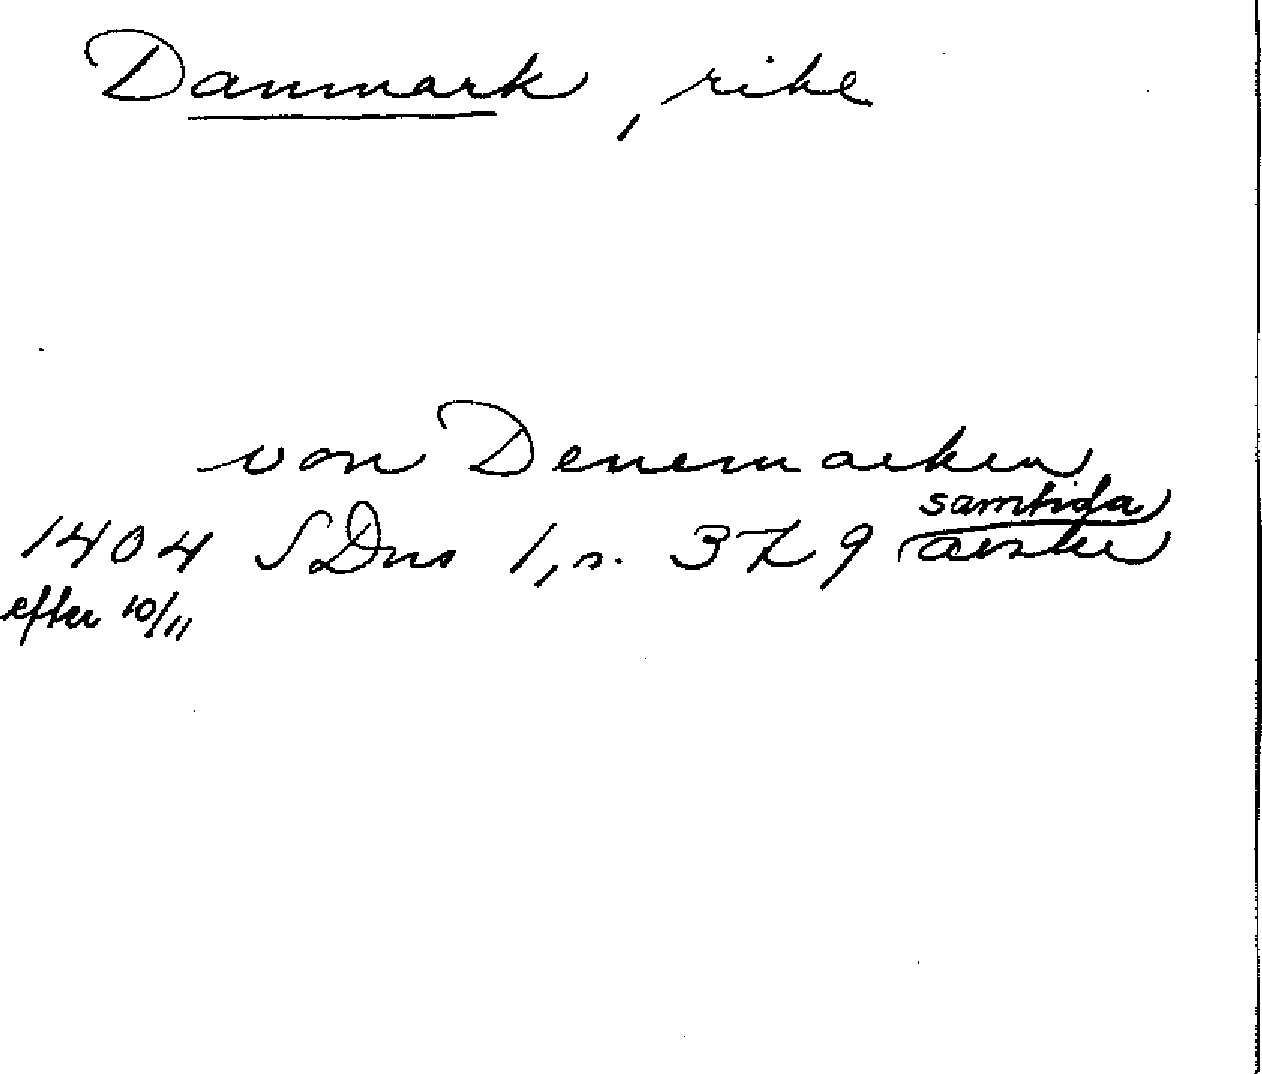 Danmark, rike
von Denemarken
samtida
1404 SDns 1, s. 379 avskr
efter 10/11